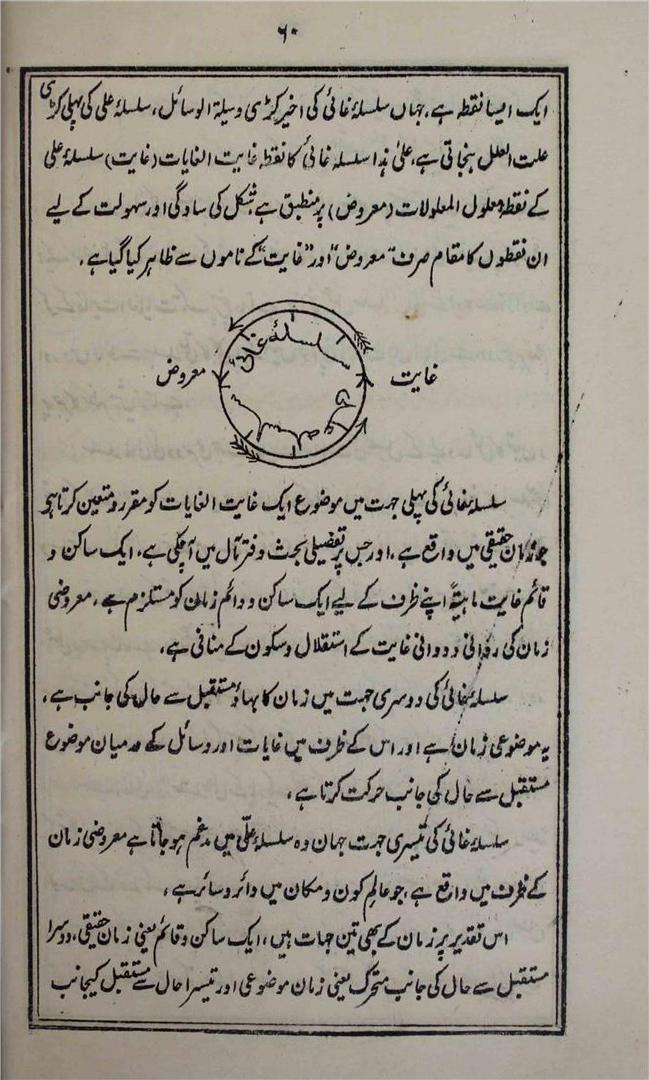 ۶۰
ایک ایسا نقطہ ہے، جہاں سلسلۂ غائی کی اخیر کڑی وسیلۃ الوسائل، سلسلۂ علی کی پہلی کڑی
علت العلل بنجاتی ہے، علیٰ ہذا سلسلہ غائی کا نقطہ غایت الغایات (غایت) سلسلۂ علی
کے نقطہ معلول المعلولات (معروض) پر منطبق ہے شکل کی سادگی اور سہولت کے لیے
ان نقطوں کا مقام صرف "معروض" اور "غایت" کے ناموں سے ظاہر کیا گیا ہے،
سلسلۂ غائی
معروض
غایت
سلسلہ علی
سلسلۂ غائی کی پہلی جہت میں موضوع ایک غایت الغایات کو مقرر و متعین کرتا ہے
جو زمان حقیقی میں واقع ہے، اور جس پر تفصیلی بحث دفتر تال میں آچکی ہے، ایک ساکن و
قائم غایت ماہیتہً اپنے ظرف کے لیے ایک ساکن و دائم زمان کو مستلزم ہے، معروضی
زمان کی روانی و دوانی غایت کے استقلال و سکون کے منافی ہے،
سلسلہ غائی کی دوسری جہت میں زمان کا بہاؤ مستقبل سے حال کی جانب ہے،
یہ موضوعی زمان ہے اور اس کے ظرف میں غایات اور وسائل کے درمیان موضوع
مستقبل سے حال کی جانب حرکت کرتا ہے،
سلسلۂ غائی کی تیسری جہت جہان وہ سلسلۂ علّی میں مدغم ہو جاتا ہے معروضی زمان
کے ظرف میں واقع ہے، جو عالم کون و مکان میں دائر و سائر ہے،
اس تقدیر پر زمان کے بھی تین جہات ہیں، ایک ساکن و قائم یعنی زمان حقیقی، دوسرا
مستقبل سے حال کی جانب متحرک یعنی زمان موضوعی اور تیسرا حال سے مستقبل کیجانب